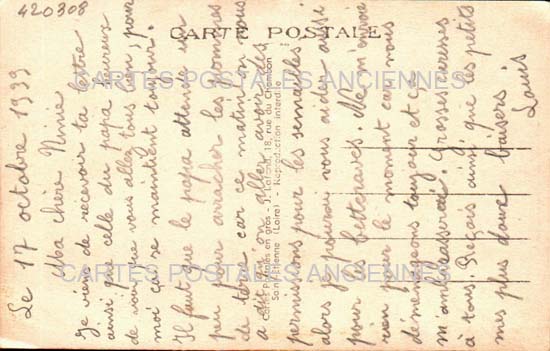 420308
CARTE POSTALE
Le 17 octobre 1939
Ma chère Ninie
Je viens de recevoir ta lettre
ainsi que celle du papa heureux
de voir que vous allez tous bien, pour
moi ça se maintient toujours.
Il faut que le papa attende un
peu pour arracher les pommes
de terre car ce matin on nous
a dit on aller avoir des
permissions pour les semailles,
alors je pourrai vous aider aussi
pour les betteraves. Ne m'envoie
rien pour le moment car nous
déménageons toujours et ça
m'embasserait. Grosses caresses
à tous. Reçois ainsi que les petits
mes plus doux baisers
Louis
Cartes Postales en gros - J. Lafond, 18, rue du Chambon
Saint-Etienne (Loire) - Reproduction interdite
CARTES POSTALES ANCIENNES
CARTES POSTALES ANCIENNES